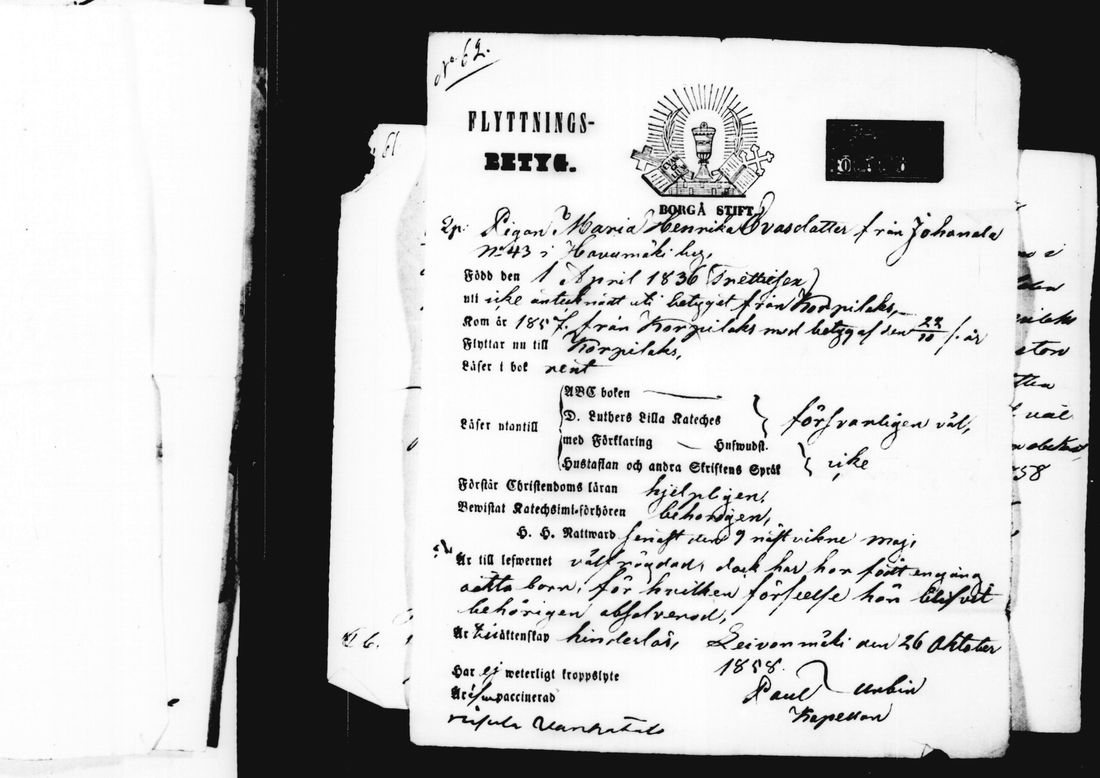 No 62.
FLYTTNINGS-
BETYG.
BORGÅ STIFT
61
Pigan Maria Henrika Evasdatter från Johanala
No 43 i Havumäki by,
Född den 1 April 1836 (Trettiesex)
uti icke antecknatt uti betyget från Korpilaks,
Kom år 1857. från Korpilaks med betyg af den 22/10 s. år
Flyttar nu till Korpilaks,
Läser i bok rent
Läser utantill
ABC boken
D. Luthers Lilla Kateches
med Förklaring — Huswudst.
försvarligen väl,
Hustaflan och andra Skriftens Språk icke
Förstår Christendoms läran hjelpligen,
Bewistat Katechsimi-förhören behörigen,
H. H. Nattward senast den 9 näst vikne maj,
Är till lefwernet välfrägdad, dock har hon födt engång
oäkta barn, för hvilken förseelse hon blifvit
behörigen absolverad,
Är till äktenskap hinderlös, Leivonmäki den 26 Oktober
1858.
Har ej weterligt kroppslyte
Är waccinerad
Paul
Kapellan
58